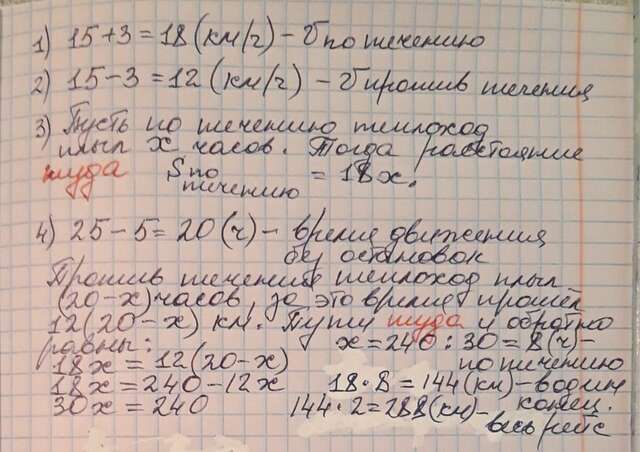 1) 15+3=18(км/ч) - v по течению
2) 15-3=12(км/ч) - v против течения
3) Пусть по течению теплоход
плыл x часов. Тогда расстояние
туда S по течению = 18x.
4) 25-5=20(ч) - время движения
без остановок
Против течения теплоход плыл
(20-x) часов, за это время прошёл
12(20-x) км. Пути туда и обратно
равны:
18x = 12(20-x)
18x = 240-12x
30x = 240
x=240:30=8(ч)-
по течению
18·8=144(км)-в один
конец.
144·2=288(км)-
весь рейс